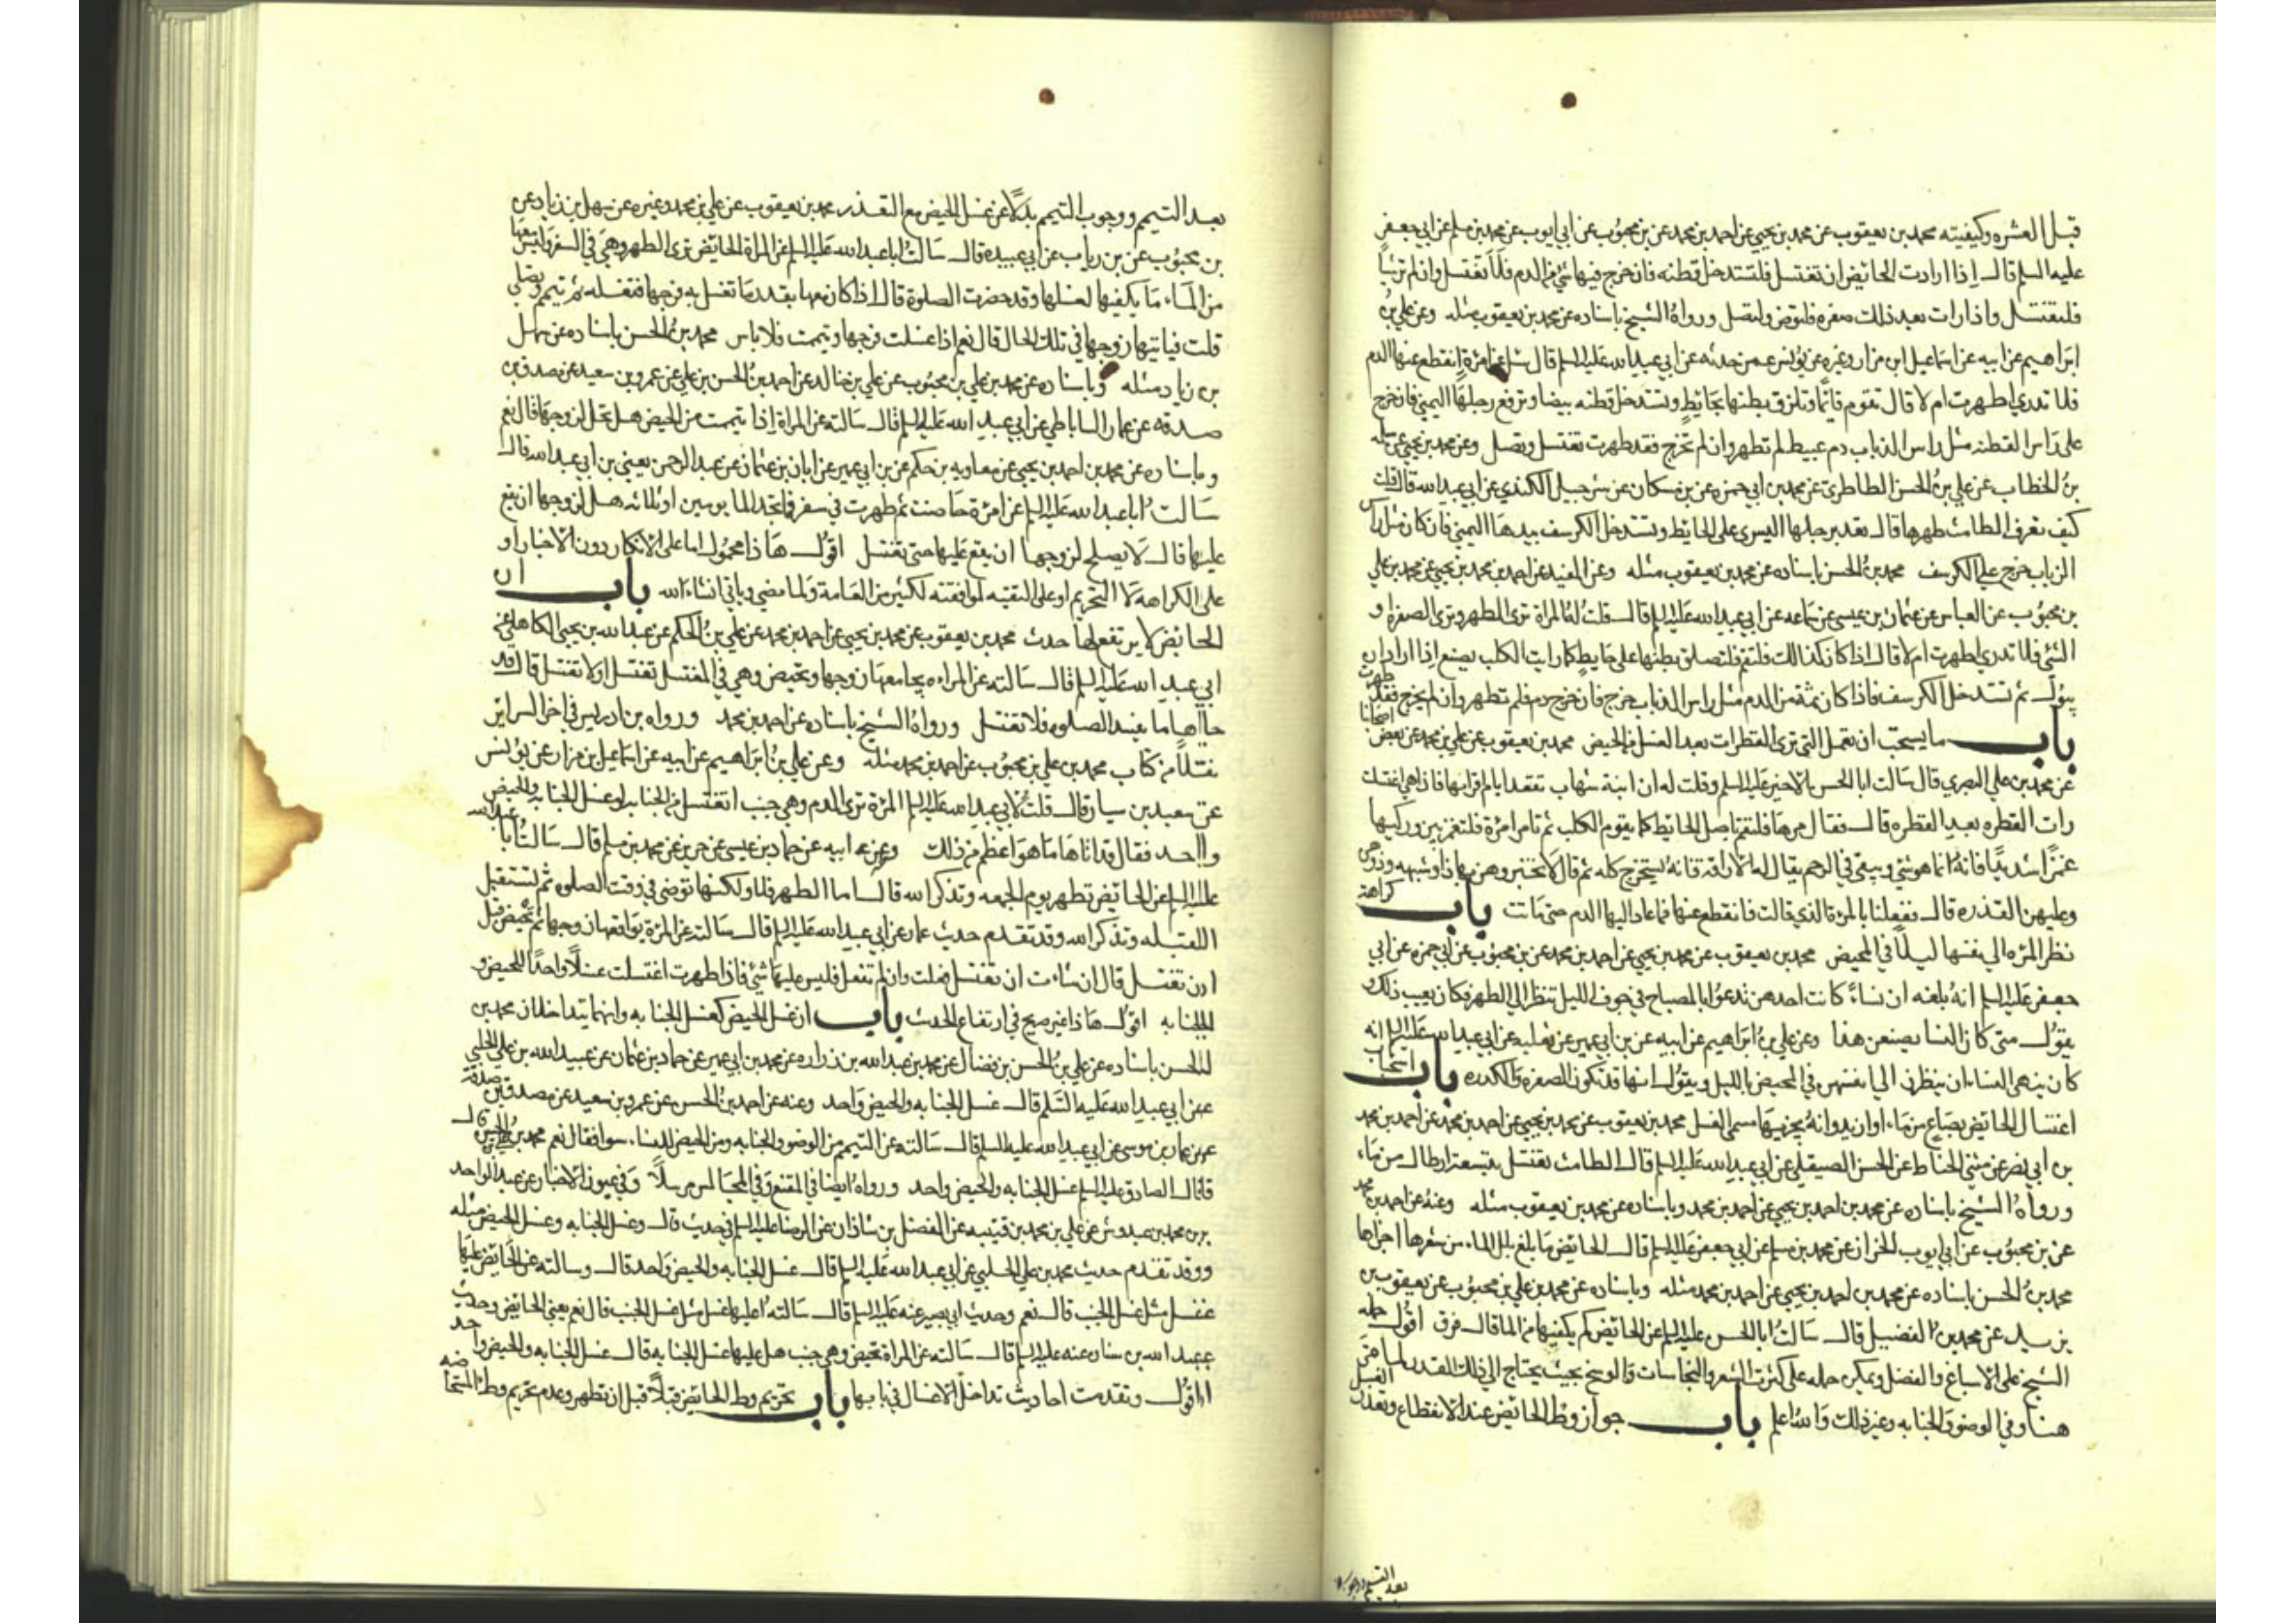 قبل العشره وكيفيته محمد بن يعقوب عن محمد بن يحيى عن احمد بن محمد عن بن محبوب عن ابي ايوب عن محمد بن مسلم عن ابي جعفر
عليه السلم قال اذا ارادت الحائض ان تغتسل فلتستدخل قطنه فان خرج فيها شئ من الدم فلا تغتسل وان لم تر شيأ
فلتغتسل واذا رات بعد ذلك صفره فلتوض ولتصل ورواهُ الشيخ باسناده عن محمد بن يعقوب مثله وعن علي بن
ابراهيم عن ابيه عن اسماعيل ابن مزار وغيره عن يونس عمن حدثه عن ابي عبد الله عليه السلم قال سئل عن امرٔة انقطع عنها الدم
فلا تدري اطهرت ام لا قال تقوم قائما وتلزق بطنها بحايط وتستدخل قطنه بيضا وترفع رجلها اليمني فان خرج
على راس القطنه مثل راس الذباب دم عبيط لم تطهر وان لم تخرج فقد طهرت تغتسل وتصل وعن محمد بن يحيى عن سلمه
بن الخطاب عن علي بن الحسن الطاطري عن محمد بن ابي حمزه عن بن مسكان عن شرحبيل الكندي عن ابي عبد الله قال قلت
كيف تعرف الطامث طهرها قال تعمد برجلها اليسرى على الحايط وتستدخل الكرسف بيدها اليمني فان كان مثل راس
الزباب خرج علي الكرسف محمد بن الحسن باسناده عن محمد بن يعقوب مثله وعن المفيد عن احمد بن محمد بن يحيى عن محمد بن علي
بن محبوب عن العباس عن عثمان بن عيسى عن سماعه عن ابي عبد الله عليه السلم قال قلت له المراة ترى الطهر وترى الصفرة و
الشئ فلا تدري اطهرت ام لا قال اذا كان كذالك فلتقم فلتصلق بطنها على حايط كما رايت الكلب يصنع اذا اراد ان
يبول ثم تستدخل الكرسف فاذا كان ثمة من الدم مثل راس الذباب خرج فان خرج دم فلم تطهر وان لم يخرج فقد طهرت
باب ما يستحب ان تعمل التي ترى القطرات بعد الغسل من الحيض محمد بن يعقوب عن علي بن محمد عن بعض اصحابنا
عن محمد بن علي البصري قال سالت ابا الحسن الاخير عليه السلم وقلت له ان ابنة شهاب تقعد ايام اقرايها فاذا هي اغتسلت
رات القطره بعد القطره قال فقال مرها فلتقم باصل الحايط كما يقوم الكلب ثم تامر امرٔة فلتغمز بين وركيها
غمزا شديدا فانهُ انما هو شئ ويبقى في الرحم يقال له الاراقه فانهُ يستخرج كله ثم قال لا تخبروهن بهاذا وشبهه وذروهن
وعليهن القذره قال ففعلنا بالمرٔة الذي قالت فانقطع عنها فما عاد اليها الدم حتى ماتت باب كراهة
نظر المرٔه الي نفسها ليلاً في المحيض محمد بن يعقوب عن محمد بن يحيى عن احمد بن محمد عن بن محبوب عن ابي حمزه عن ابي
جعفر عليه السلم انهُ بلغه ان نساءً كانت احدهن تدعوا بالمصباح في جوف الليل تنظر الي الطهر فكان يعيب ذلك و
يقول متى كان النسا يصنعن هذا وعن علي بن ابراهيم عن ابيه عن بن ابي عمير عن ثعلبه عن ابي عبد الله عليه السلم انه
كان ينهى النساء ان ينظرن الي انفسهن في المحيض بالليل ويقول انها قد تكون الصفره والكدره باب استحباب
اغتسال الحائض بصاع من ماء او ازيد وانهُ يجزيها مسمى الغسل محمد بن يعقوب عن محمد بن يحيى عن احمد بن محمد عن احمد بن محمد
بن ابي نصر عن مثني الحناط عن الحسن الصيقل عن ابي عبد الله عليه السلم قال الطامث تغتسل بتسعة ارطال من ماء
ورواهُ الشيخ باسناده عن محمد بن احمد بن يحيى عن احمد بن محمد وباسناده عن محمد بن يعقوب مثله وعنهُ عن احمد بن محمد
عن بن محبوب عن ابي ايوب الخزاز عن محمد بن مسلم عن ابي جعفر عليه السلم قال الحائض ما بلغ بلل الماء من شعرها اجزاها
محمد بن الحسن باسناده عن محمد بن احمد بن يحيى عن احمد بن محمد مثله وباسناده عن محمد بن علي بن محبوب عن يعقوب بن
يزيد عن محمد بن الفضيل قال سالت ابا الحسن عليه السلم عن الحائض كم يكفيها من الما قال فرق اقول حمله
الشيخ على الاسباغ والفضل ويمكن حمله على كثرت الشعر والنجاسات والوسخ بحيث يحتاج الي ذلك القدر لما مر
هنا وفي الوضو والجنابه وغير ذلك والله اعلم باب جواز وطٔ الحائض عند الانقطاع وتعذر الغسل
بعد التيمم ووجوب
بعد التيمم ووجوب التيمم بدلاً عن غسل الحيض مع التعذر محمد بن يعقوب عن علي بن محمد وغيره عن سهل بن زياد عن
بن محبوب عن بن رياب عن ابي عبيده قال سالت ابا عبد الله عليه السلم عن المراة الحائض ترى الطهر وهي في السفر وليس معها
من الماء ما يكفيها لغسلها وقد حضرت الصلوة قال اذا كان معها بقدر ما تغسل به فرجها فتغسله ثم تتيمم وتصلي
قلت فياتيها زوجها في تلك الحال قال نعم اذا غسلت فرجها وتيممت فلا باس محمد بن الحسن باسناده عن سهل
بن زياد مثله وباسناده عن محمد بن علي بن محبوب عن علي بن خالد عن احمد بن الحسن بن علي عن عمرو بن سعيد عن مصدق بن
صدقه عن عمار الساباطي عن ابي عبد الله عليه السلم قال سالته عن المراة اذا تيممت من الحيض هل تحل لزوجها قال نعم
وباسناده عن محمد بن احمد بن يحيى عن معاويه بن حكم عن بن ابي عمير عن ابان بن عثمان عن عبد الرحمن يعني بن ابي عبد الله قال
سالت ابا عبد الله عليه السلم عن امرٔة حاضت ثم طهرت في سفر فلم تجد الما يومين او ثلاثه هل لزوجها ان يقع
عليها قال لا يصلح لزوجها ان يقع عليها حتى تغتسل اقول هاذا محمول اما على الانكار دون الاخبار او
على الكراهه لا التحريم او على التقيه لموافقته لكثير من العامة ولما مضى وياتي انشاء الله باب ان
الحائض لا يرتفع لها حدث محمد بن يعقوب عن محمد بن يحيى عن احمد بن محمد عن علي بن الحكم عن عبد الله بن يحيى الكاهلي عن
ابي عبد الله عليه السلم قال سالته عن المراه يجامعها زوجها وتحيض وهي في المغتسل تغتسل او لا تغتسل قال قد
جاءها ما يفسد الصلوه فلا تغتسل ورواهُ الشيخ باسناده عن احمد بن محمد ورواه بن ادريس في اخر السرائر
نقلاً من كتاب محمد بن علي بن محبوب عن احمد بن محمد مثله وعن علي بن ابراهيم عن ابيه عن اسماعيل بن مزار عن يونس
عن سعيد بن سيار قال قلت لابي عبد الله عليه السلم المرٔة ترى الدم وهي جنب اتغتسل من الجنابه او غسل الجنابه والحيض
واحد فقال قد اتاها ما هو اعظم من ذلك وعن ابيه عن حماد بن عيسى عن حريز عن محمد بن مسلم قال سالت ابا عبد الله
عليه السلم عن الحائض تطهر يوم الجمعه وتذكر الله قال اما الطهر فلا ولكنها توضى في وقت الصلوه ثم تستقبل
القبله وتذكر الله وقد تقدم حديث عمار عن ابي عبد الله عليه السلم قال سالته عن المرٔة يواقعها زوجها ثم تحيض قبل
ان تغتسل قال ان شاءت ان تغتسل فعلت وان لم تفعل فليس عليها شئ فاذا طهرت اغتسلت غسلاً واحداً للحيض و
الجنابه اقول هاذا غير صريح في ارتفاع الحدث باب ان غسل الحيض كغسل الجنابه وانهما يتداخلان محمد بن
الحسن باسناده عن علي بن الحسن بن فضال عن محمد بن عبد الله بن زراره عن محمد بن ابي عمير عن حماد بن عثمان عن عبيد الله بن علي الحلبي
عن ابي عبد الله عليه السلم قال غسل الجنابه والحيض واحد وعنه عن احمد بن الحسن عن عمرو بن سعيد عن مصدق بن صدقه
عن عمار بن موسى عن ابي عبد الله عليه السلم قال سالته عن التيمم من الوضو والجنابه ومن الحيض للنساء سوا فقال نعم محمد بن علي بن الحسين قال
قال الصادق عليه السلم غسل الجنابه والحيض واحد ورواهُ ايضا في المقنع وفي المجالس مرسلاً وفي عيون الاخبار عن عبد الواحد
بن محمد بن عبدوس عن علي بن محمد بن قتيبه عن الفضل بن شاذان عن الرضا عليه السلم في حديث قال وغسل الجنابه وغسل الحيض مثله
وقد تقدم حديث محمد بن علي الحلبي عن ابي عبد الله عليه السلم قال غسل الجنابه والحيض واحد قال وسالته عن الحائض عليها
غسل مثل غسل الجنب قال نعم وحديث ابي بصير عنه عليه السلم قال سالتهُ اعليها غسل مثل غسل الجنب قال نعم يعني الحائض وحديث
عبد الله بن سنان عنه عليه السلم قال سالته عن المراة تحيض وهي جنب هل عليها غسل الجنابه قال غسل الجنابه والحيض واحد
اقول وتقدمت احاديث تداخل الاغسال في بابها باب تحريم وطٔ الحائض قبلاً قبل ان تطهر وعدم تحريم وطٔ المستحاضه